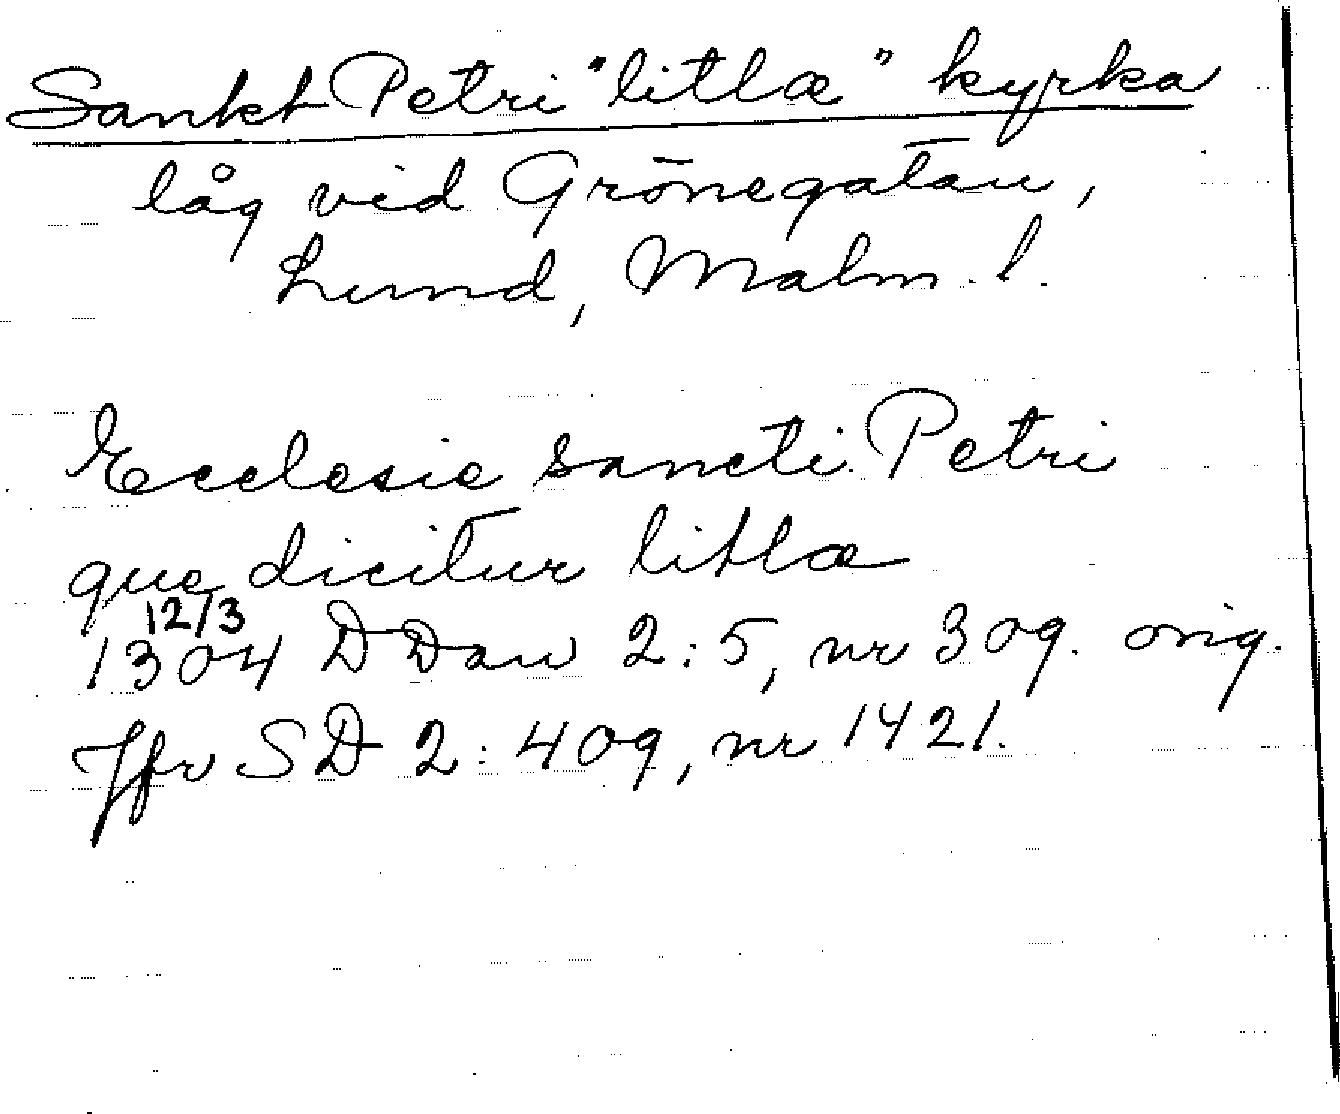 Sankt Petri "litlæ" kyrka
låg vid Grönegatan,
Lund, Malm. l.
Ecclesie sancti Petri
que dicitur litlæ
12/3
1304 DDan 2:5, nr 309. orig.
Jfr SD 2:409, nr 1421.